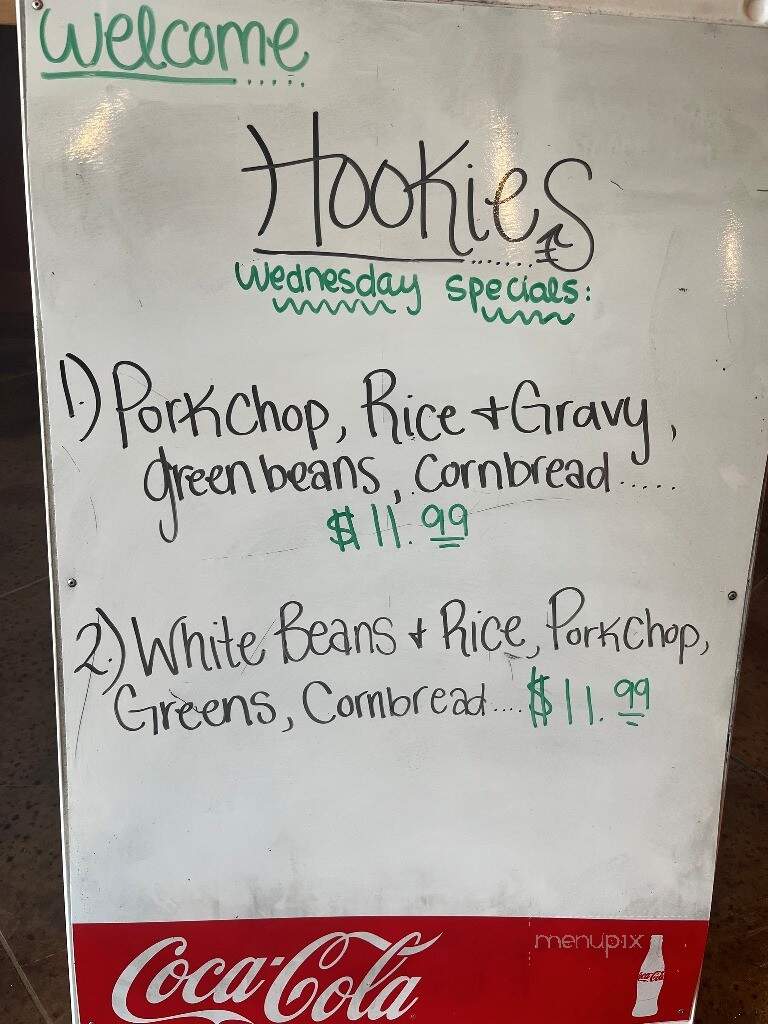 Welcome.....
Hookies
Wednesday Specials:
1.) Porkchop, Rice + Gravy,
green beans, Cornbread.....
$11.99
2.) White Beans + Rice, Porkchop,
Greens, Cornbread....$11.99
menupix
Coca-Cola
Coca-Cola